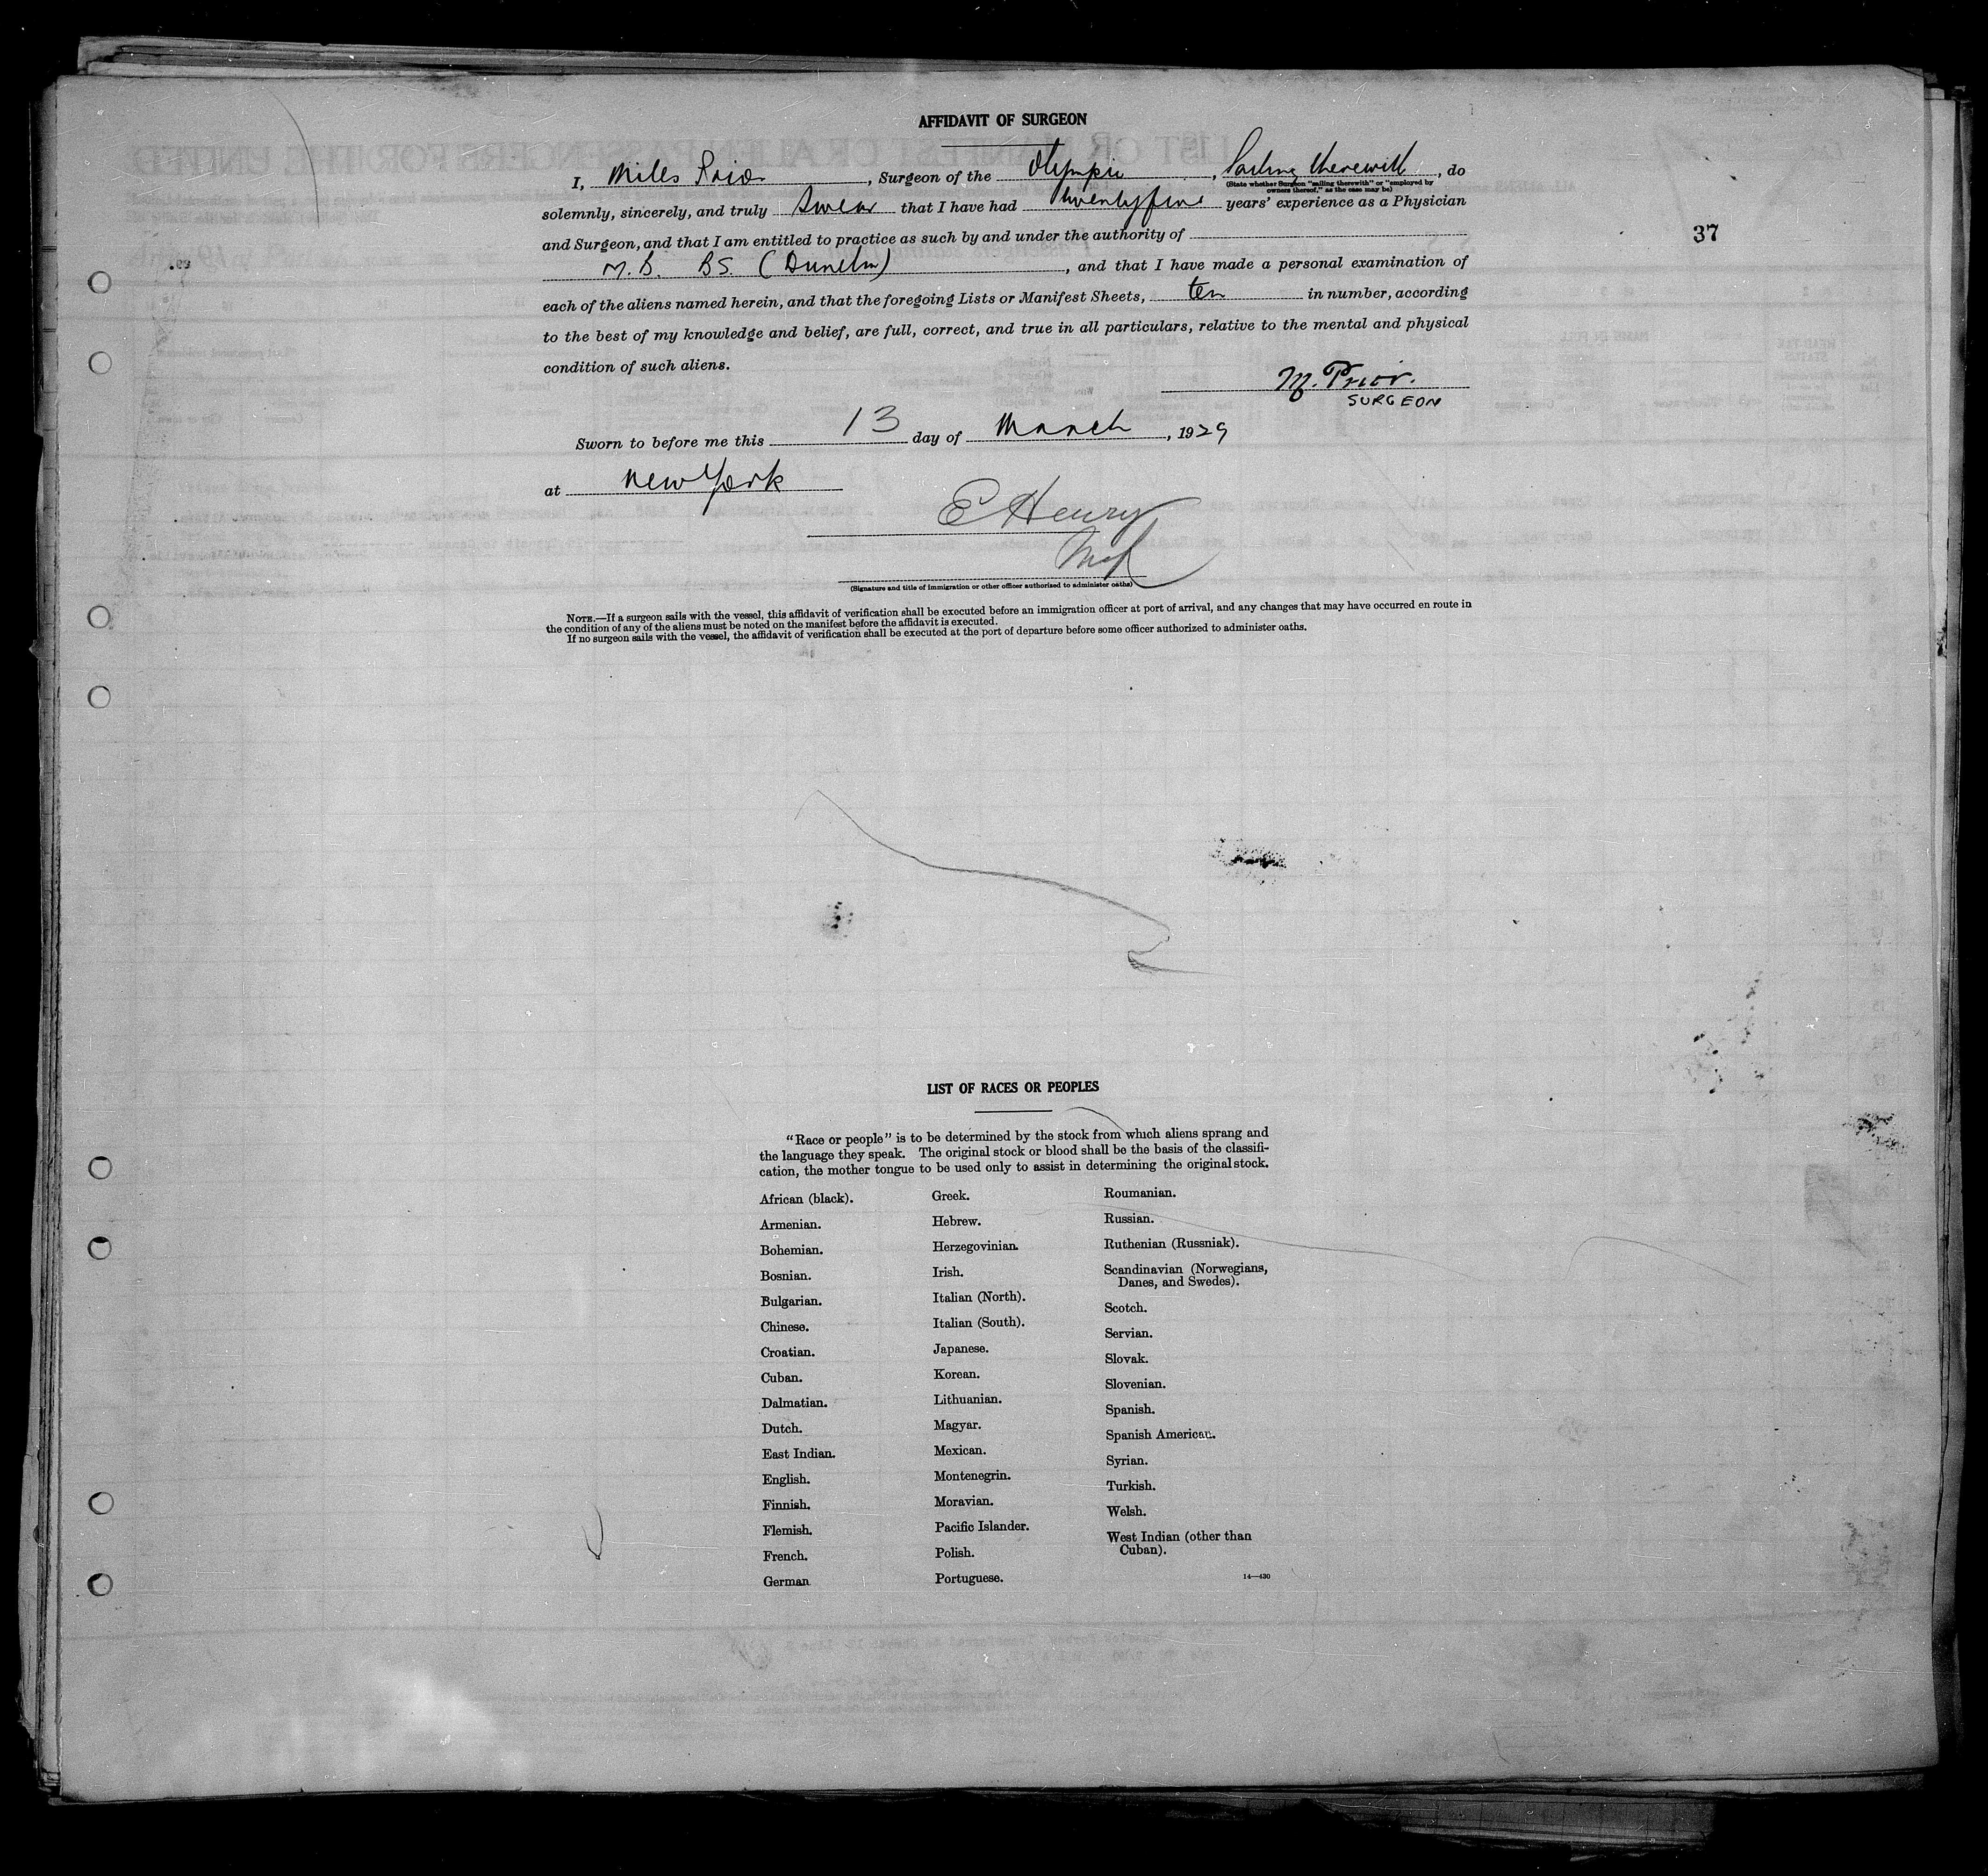 AFFIDAVIT OF SURGEON
I, Miles Prior, Surgeon of the Olympic, Sailing therewith, do
(State whether Surgeon "sailing therewith" or "employed by
owners thereof," as the case may be)
solemnly, sincerely, and truly swear that I have had twentyfive years' experience as a Physician
and Surgeon, and that I am entitled to practice as such by and under the authority of
M.B. BS. (Dunelm), and that I have made a personal examination of
each of the aliens named herein, and that the foregoing Lists or Manifest Sheets, ten in number, according
to the best of my knowledge and belief, are full, correct, and true in all particulars, relative to the mental and physical
condition of such aliens.
M. Prior.
SURGEON
Sworn to before me this 13 day of March, 1929
at New York
E Henry
(Signature and title of immigration or other officer authorized to administer oaths)
NOTE.—If a surgeon sails with the vessel, this affidavit of verification shall be executed before an immigration officer at port of arrival, and any changes that may have occurred en route in
the condition of any of the aliens must be noted on the manifest before the affidavit is executed.
If no surgeon sails with the vessel, the affidavit of verification shall be executed at the port of departure before some officer authorized to administer oaths.
37
LIST OF RACES OR PEOPLES
"Race or people" is to be determined by the stock from which aliens sprang and
the language they speak. The original stock or blood shall be the basis of the classifi-
cation, the mother tongue to be used only to assist in determining the original stock.
African (black).
Armenian.
Bohemian.
Bosnian.
Bulgarian.
Chinese.
Croatian.
Cuban.
Dalmatian.
Dutch.
East Indian.
English.
Finnish.
Flemish.
French.
German
Greek.
Hebrew.
Herzegovinian.
Irish.
Italian (North).
Italian (South).
Japanese.
Korean.
Lithuanian.
Magyar.
Mexican.
Montenegrin.
Moravian.
Pacific Islander.
Polish.
Portuguese.
Roumanian.
Russian.
Ruthenian (Russniak).
Scandinavian (Norwegians,
Danes, and Swedes).
Scotch.
Servian.
Slovak.
Slovenian.
Spanish.
Spanish American.
Syrian.
Turkish.
Welsh.
West Indian (other than
Cuban).
14—430